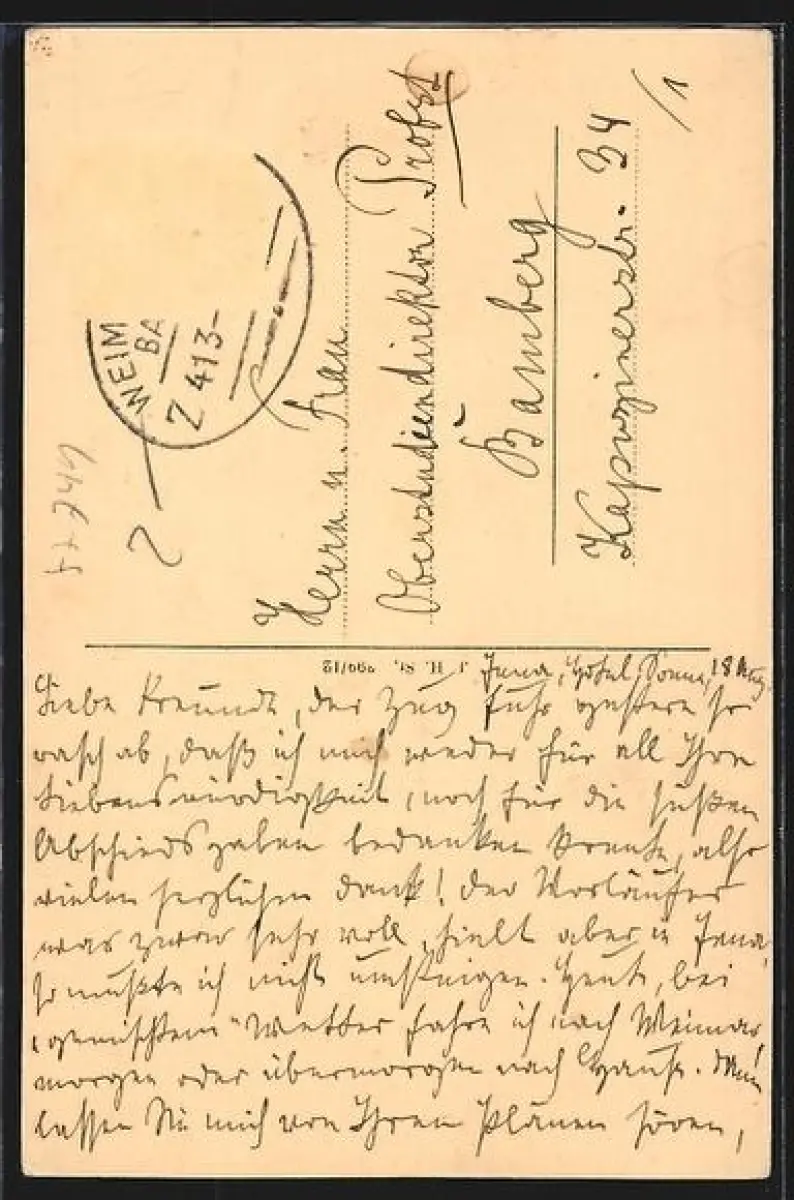 WEIM
BA
Z 413-
Herrn u. Frau
Oberstudiendirektor Probst
Bamberg
Kapuzinerstr. 34
/1
J. H. St. 799/12
Jena, Hotel Sonne, 18 Aug.
Liebe Freunde, der Zug fuhr gestern so
rasch ab, daß ich mich weder für all Ihre
Liebenswürdigkeit, noch für die süßen
Abschiedsgaben bedanken konnte, also
vielen herzlichen Dank! Der Vorläufer
war zwar sehr voll, hielt aber in Jena,
so mußte ich nicht umsteigen. Heute, bei
„gemischtem" Wetter fahre ich nach Weimar,
morgen oder übermorgen nach Hause. Dann
lassen Sie mich von Ihren Plänen hören,